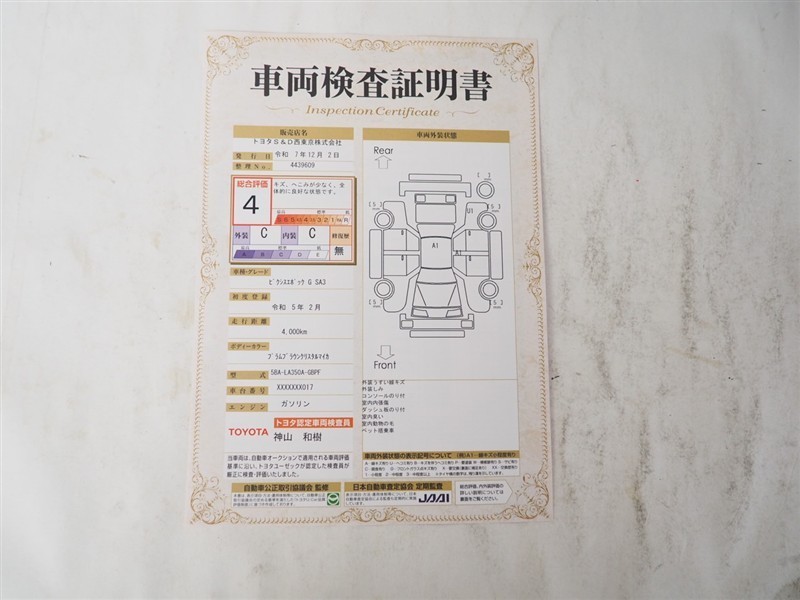 車両検査証明書
Inspection Certificate
販売店名
トヨタS&D西東京株式会社
発行日 令和 7年12月 2日
整理No. 4439609
総合評価
4
キズ、へこみが少なく、全
体的に良好な状態です。
外装 C 内装 C 修復歴
無
A B C D E
車種・グレード
ピクシスエポック G SA3
初度登録
令和 5年 2月
走行距離
4,000km
ボディーカラー
プラムブラウンクリスタルマイカ
型式
5BA-LA350A-GBPF
車台番号
XXXXXXX017
エンジン
ガソリン
TOYOTA
トヨタ認定車両検査員
神山 和樹
当車両は、自動車オークションで適用される車両評価
基準に沿い、トヨタユーゼックが認定した検査員が
厳正に検査・評価いたしました。
自動車公正取引協議会 監修
車両外装状態
Rear
[ ]
[5] U1 [5]
A1 A1
[5] [5]
Front
外装うすい線キズ
外装しみ
コンソールのり付
室内内後傷
ダッシュ板のり付
室内臭い
室内動物の毛
ペット搭乗車
車両外装状態の表示記号について
日本自動車査定協会 定期監査
JAAI
総合評価、内外装評価の
詳しい説明については
裏面をご覧ください。